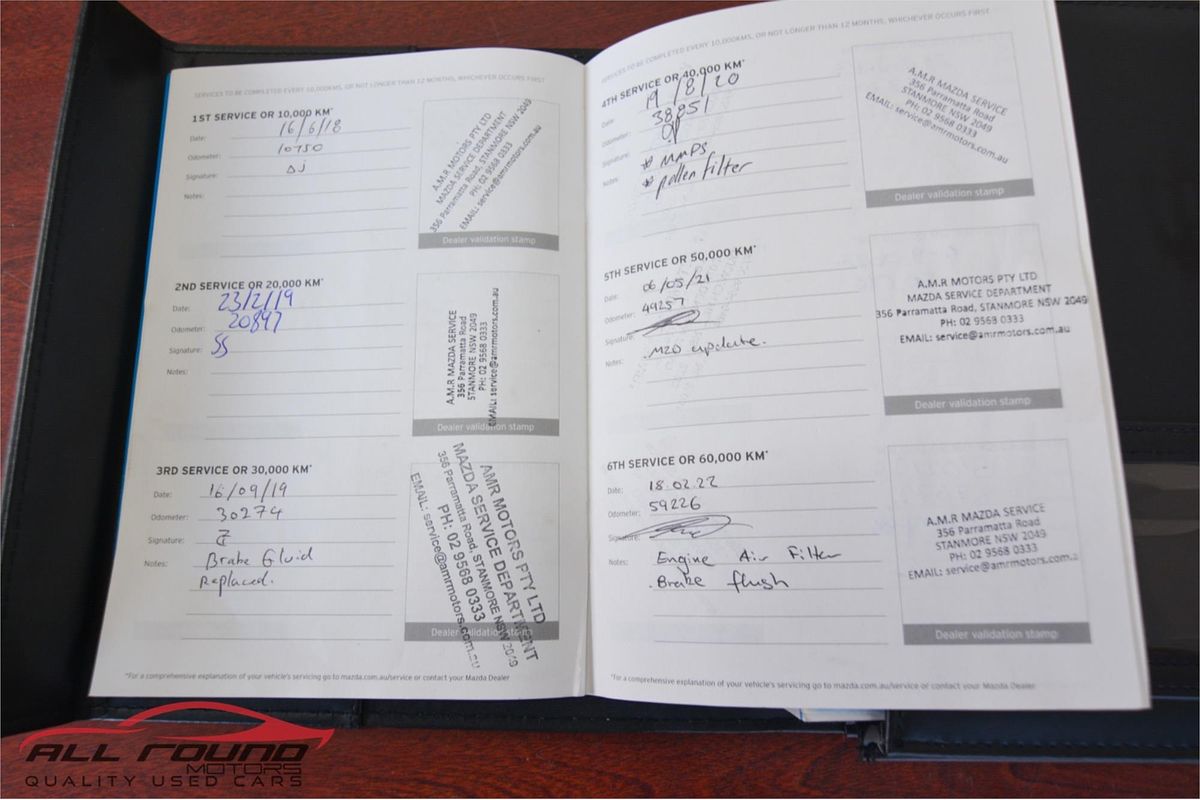 SERVICES TO BE COMPLETED EVERY 10,000KMS, OR NOT LONGER THAN 12 MONTHS, WHICHEVER OCCURS FIRST
1ST SERVICE OR 10,000 KM*
Date: 16/6/18
Odometer: 10750
Signature:
Notes:
A.M.R MOTORS PTY LTD
MAZDA SERVICE DEPARTMENT
356 Parramatta Road, STANMORE NSW 2049
PH: 02 9568 0333
EMAIL: service@amrmotors.com.au
Dealer validation stamp
2ND SERVICE OR 20,000 KM*
Date: 23/2/19
Odometer: 20897
Signature: SS
Notes:
A.M.R MAZDA SERVICE
356 Parramatta Road
STANMORE NSW 2049
PH: 02 9568 0333
EMAIL: service@amrmotors.com.au
Dealer validation stamp
3RD SERVICE OR 30,000 KM*
Date: 16/09/19
Odometer: 30274
Signature:
Notes: Brake fluid
Replaced.
AMR MOTORS PTY LTD
MAZDA SERVICE DEPARTMENT
356 Parramatta Road, STANMORE NSW 2049
PH: 02 9568 0333
EMAIL: service@amrmotors.com.au
Dealer validation stamp
*For a comprehensive explanation of your vehicle's servicing go to mazda.com.au/service or contact your Mazda Dealer
SERVICES TO BE COMPLETED EVERY 10,000KMS, OR NOT LONGER THAN 12 MONTHS, WHICHEVER OCCURS FIRST.
4TH SERVICE OR 40,000 KM*
Date: 19/8/20
Odometer: 38851
Signature:
Notes: * MMPS
* pollen filter
A.M.R MAZDA SERVICE
356 Parramatta Road
STANMORE NSW 2049
PH: 02 9568 0333
EMAIL: service@amrmotors.com.au
Dealer validation stamp
5TH SERVICE OR 50,000 KM*
Date: 06/05/21
Odometer: 49257
Signature:
Notes: .MZD update.
A.M.R MOTORS PTY LTD
MAZDA SERVICE DEPARTMENT
356 Parramatta Road, STANMORE NSW 2049
PH: 02 9568 0333
EMAIL: service@amrmotors.com.au
Dealer validation stamp
6TH SERVICE OR 60,000 KM*
Date: 18.02.22
Odometer: 59226
Signature:
Notes: Engine Air Filter
.Brake flush
A.M.R MAZDA SERVICE
356 Parramatta Road
STANMORE NSW 2049
PH: 02 9568 0333
EMAIL: service@amrmotors.com.a
Dealer validation stamp
*For a comprehensive explanation of your vehicle's servicing go to mazda.com.au/service or contact your Mazda Dealer
ALL ROUND
MOTORS
QUALITY USED CARS